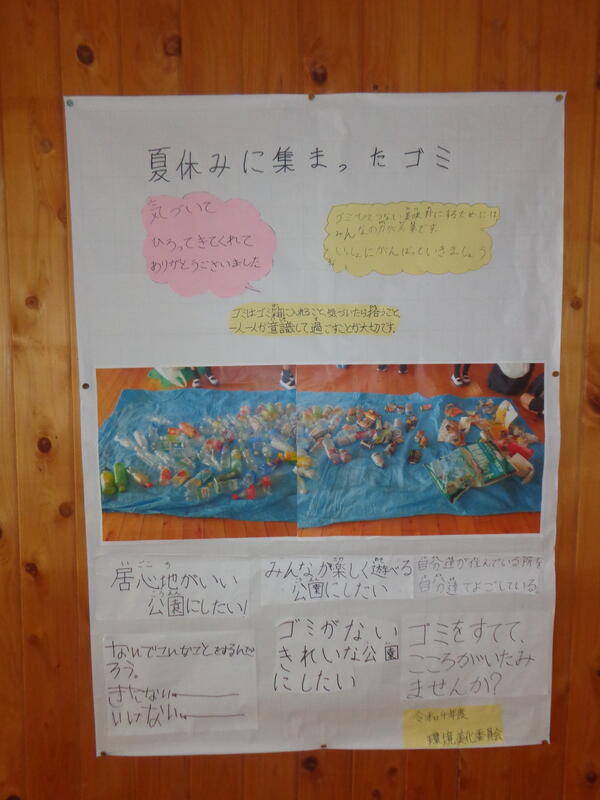 夏休みに集まったゴミ
気づいて
ひろってきてくれて
ありがとうございました
ゴミひとつない
みんなの力が必要です。
いっしょにがんばっていきましょう
ゴミはゴミ箱に入れること、気づいたら拾うこと、
一人一人が意識して過ごすことが大切です。
居心地がいい
公園にしたい!
みんなが楽しく遊べる
公園にしたい
自分達が住んでいる所を
自分達でよごしている。
なんでこんなことをするんだ
ろう。
きたないー
いけないー
ゴミがない
きれいな公園
にしたい
ゴミをすてて、
こころがいたみ
ませんか?
令和4年度
環境美化委員会